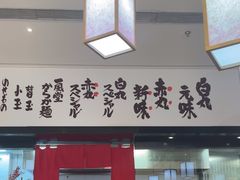 白丸
元味
赤丸
新味
白丸
スペシャル
赤丸
スペシャル
一風堂
からか麺
替玉
小玉